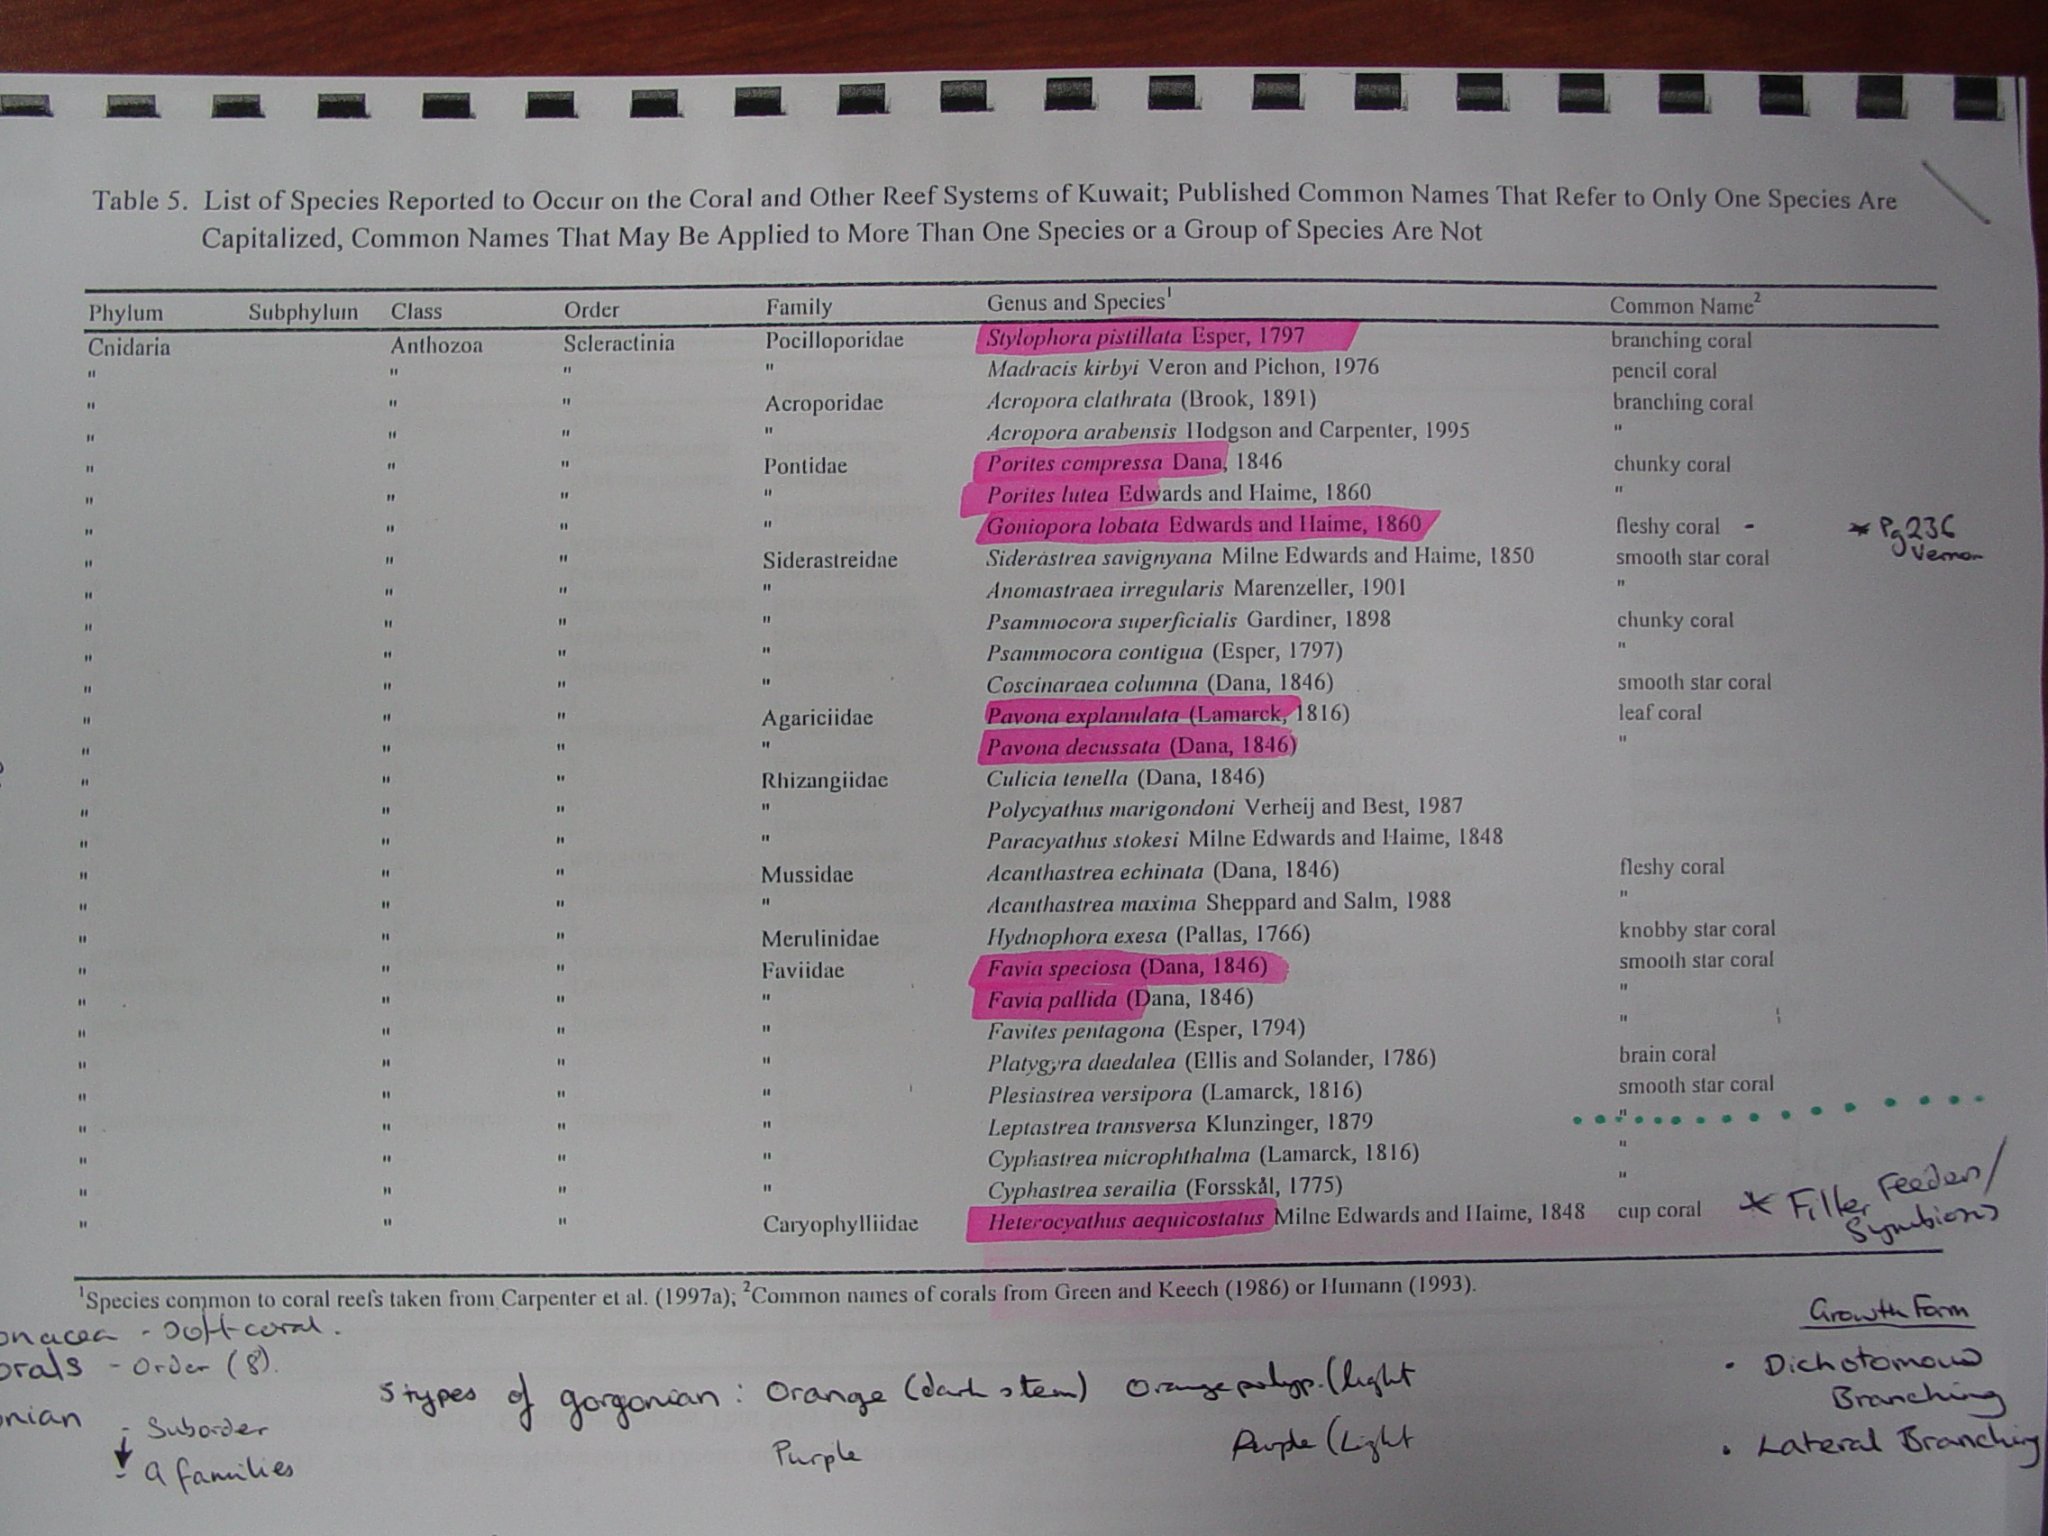 Table 5. List of Species Reported to Occur on the Coral and Other Reef Systems of Kuwait; Published Common Names That Refer to Only One Species Are
Capitalized, Common Names That May Be Applied to More Than One Species or a Group of Species Are Not
Phylum Subphylum Class Order Family Genus and Species1 Common Name2
Cnidaria Anthozoa Scleractinia Pocilloporidae Stylophora pistillata Esper, 1797 branching coral
" " " " Madracis kirbyi Veron and Pichon, 1976 pencil coral
" " " Acroporidae Acropora clathrata (Brook, 1891) branching coral
" " " " Acropora arabensis Hodgson and Carpenter, 1995 "
" " " Pontidae Porites compressa Dana, 1846 chunky coral
" " " " Porites lutea Edwards and Haime, 1860 "
" " " " Goniopora lobata Edwards and Haime, 1860 fleshy coral - * Pg 236
Vernon
" " " Siderastreidae Siderastrea savignyana Milne Edwards and Haime, 1850 smooth star coral
" " " " Anomastraea irregularis Marenzeller, 1901 "
" " " " Psammocora superficialis Gardiner, 1898 chunky coral
" " " " Psammocora contigua (Esper, 1797) "
" " " " Coscinaraea columna (Dana, 1846) smooth star coral
" " " Agariciidae Pavona explanulata (Lamarck, 1816) leaf coral
" " " " Pavona decussata (Dana, 1846) "
" " " Rhizangiidae Culicia tenella (Dana, 1846)
" " " " Polycyathus marigondoni Verheij and Best, 1987
" " " " Paracyathus stokesi Milne Edwards and Haime, 1848
" " " Mussidae Acanthastrea echinata (Dana, 1846) fleshy coral
" " " " Acanthastrea maxima Sheppard and Salm, 1988 "
" " " Merulinidae Hydnophora exesa (Pallas, 1766) knobby star coral
" " " Faviidae Favia speciosa (Dana, 1846) smooth star coral
" " " " Favia pallida (Dana, 1846) "
" " " " Favites pentagona (Esper, 1794) "
" " " " Platygyra daedalea (Ellis and Solander, 1786) brain coral
" " " " Plesiastrea versipora (Lamarck, 1816) smooth star coral
" " " " Leptastrea transversa Klunzinger, 1879 "
" " " " Cyphastrea microphthalma (Lamarck, 1816) "
" " " " Cyphastrea serailia (Forsskål, 1775) "
" " " Caryophylliidae Heterocyathus aequicostatus Milne Edwards and Haime, 1848 cup coral * Filter Feeders/
Symbiosis
1Species common to coral reefs taken from Carpenter et al. (1997a); 2Common names of corals from Green and Keech (1986) or Humann (1993).
onacea - Soft coral.
orals - Order (8).
nian - Suborder
- 9 families
5 types of gorgonian : Orange (dark stem) Orange polyp. (light
Purple Purple (Light
Growth Form
• Dichotomous
Branching
• Lateral Branching